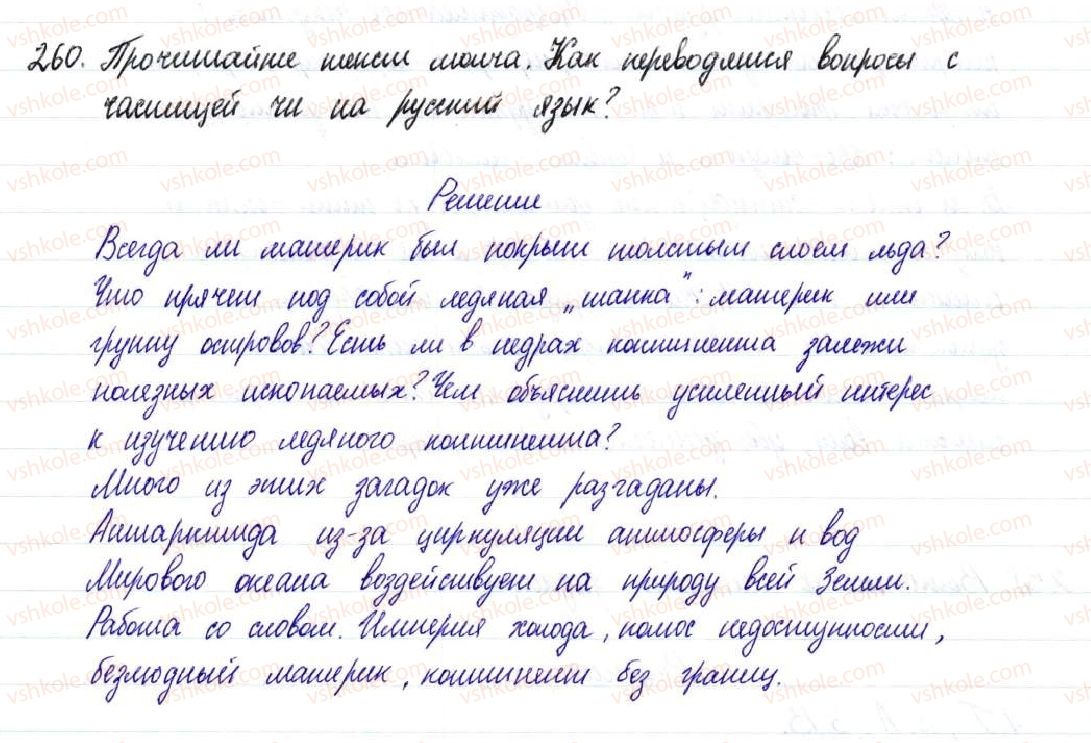 260. Прочитайте текст молча. Как переводятся вопросы с
частицей чи на русский язык?
Решение
Всегда ли материк был покрыт толстым слоем льда?
Что прячет под собой ледяная „шапка": материк или
группу островов? Есть ли в недрах континента залежи
полезных ископаемых? Чем объяснить усиленный интерес
к изучению ледяного континента?
Много из этих загадок уже разгаданы.
Антарктида из-за циркуляции атмосферы и вод
Мирового океана воздействует на природу всей Земли.
Работа со словом. Империя холода, полюс недоступности,
безлюдный материк, континент без границ.